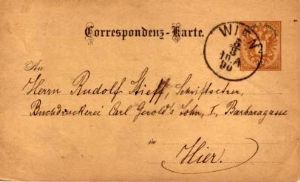 Correspondenz-Karte.
WIEN
An
Herrn Rudolf Stieff, Schriftsetzer,
Buchdruckerei Carl Gerold's Sohn, I, Barbaragasse
in
Hier.